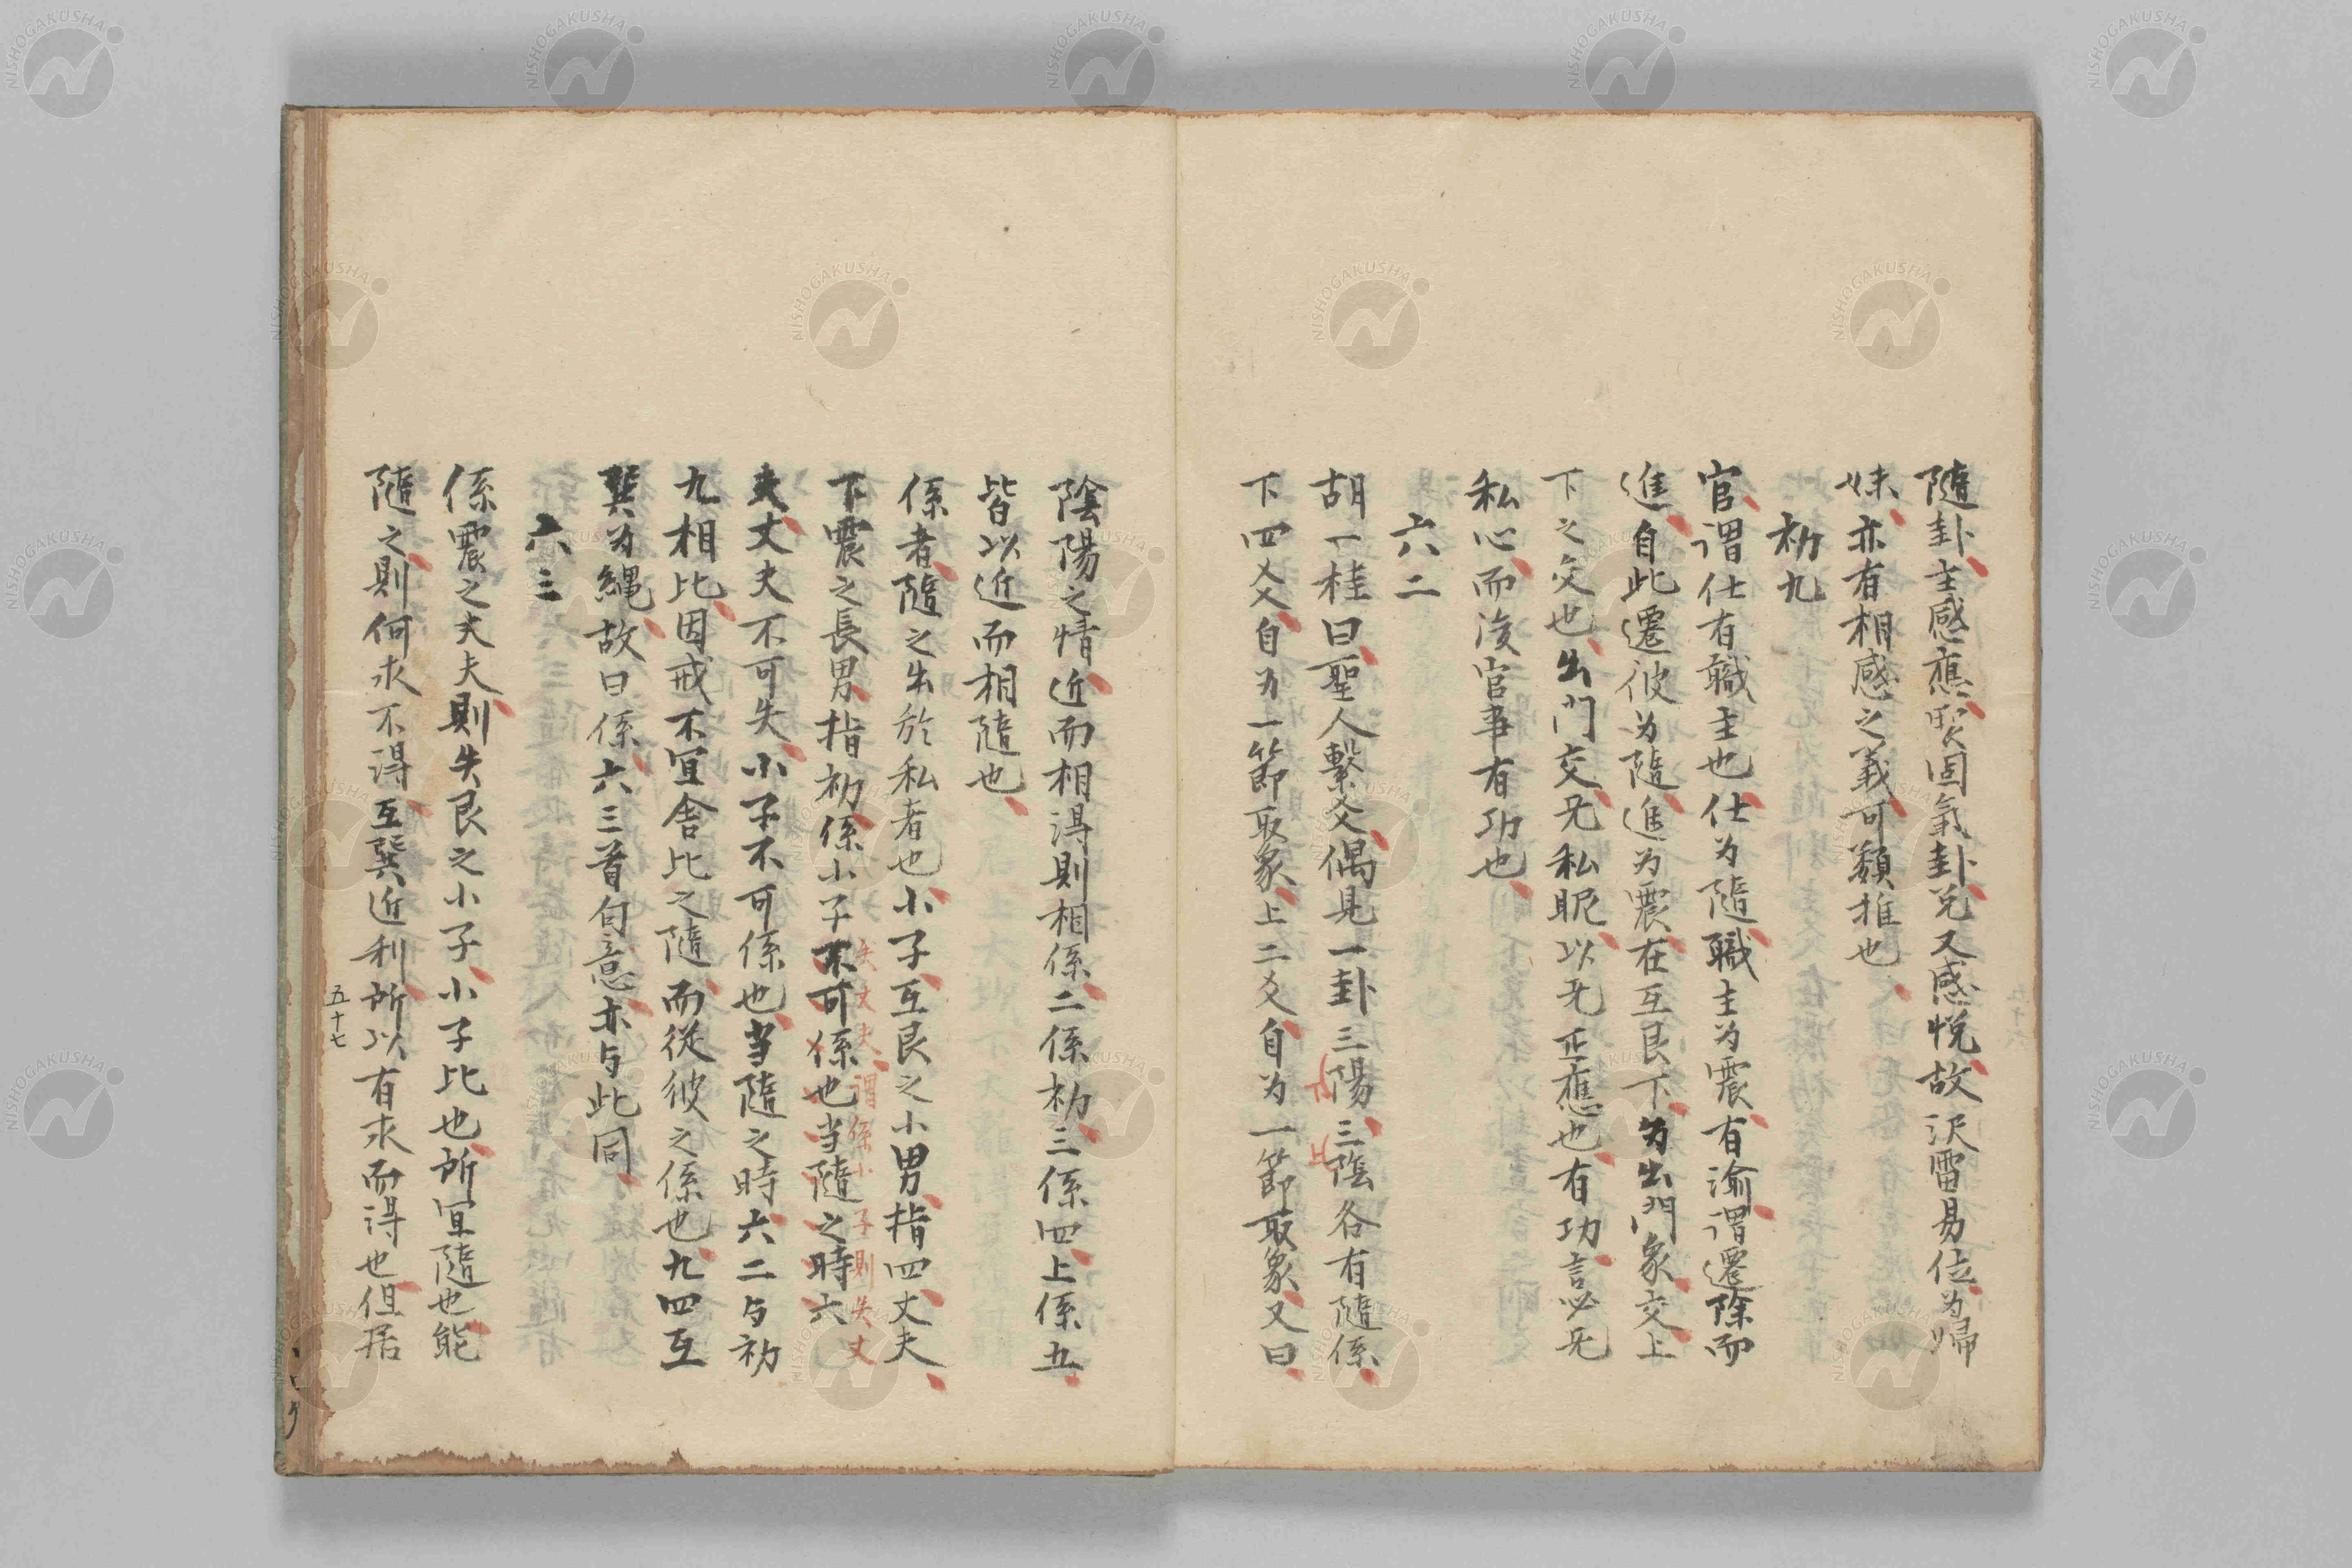 隨卦主感應契固氣卦兌又感悅故沢雷易位为歸
妹亦有相感之義可類推也
初九
官謂仕有職主也仕为隨職主为震有渝謂遷除而
進自此遷彼为隨進为震在互艮下为出門象交上
下之交也出門交无私昵以无正應也有功言必无
私心而後官事有功也
六二
胡一桂曰聖人繫爻偶見一卦三陽三陰各有隨係
下四爻自为一節取象上二爻自为一節取象又曰
陰陽之情近而相得則相係二係初三係四上係五
皆以近而相隨也
係者隨之出於私者也小子互艮之小男指四丈夫
下震之長男指初係小子不可係也当隨之時六
失丈夫謂係小子則失丈
夫丈夫不可失小子不可係也当隨之時六二与初
九相比因戒不宜舍比之隨而從彼之係也九四互
巽为繩故曰係六三首句意亦与此同
六三
係震之丈夫則失艮之小子小子比也所宜隨也能
隨之則何求不得互巽近利所以有求而得也但居
五十七
NISHOGAKUSHA